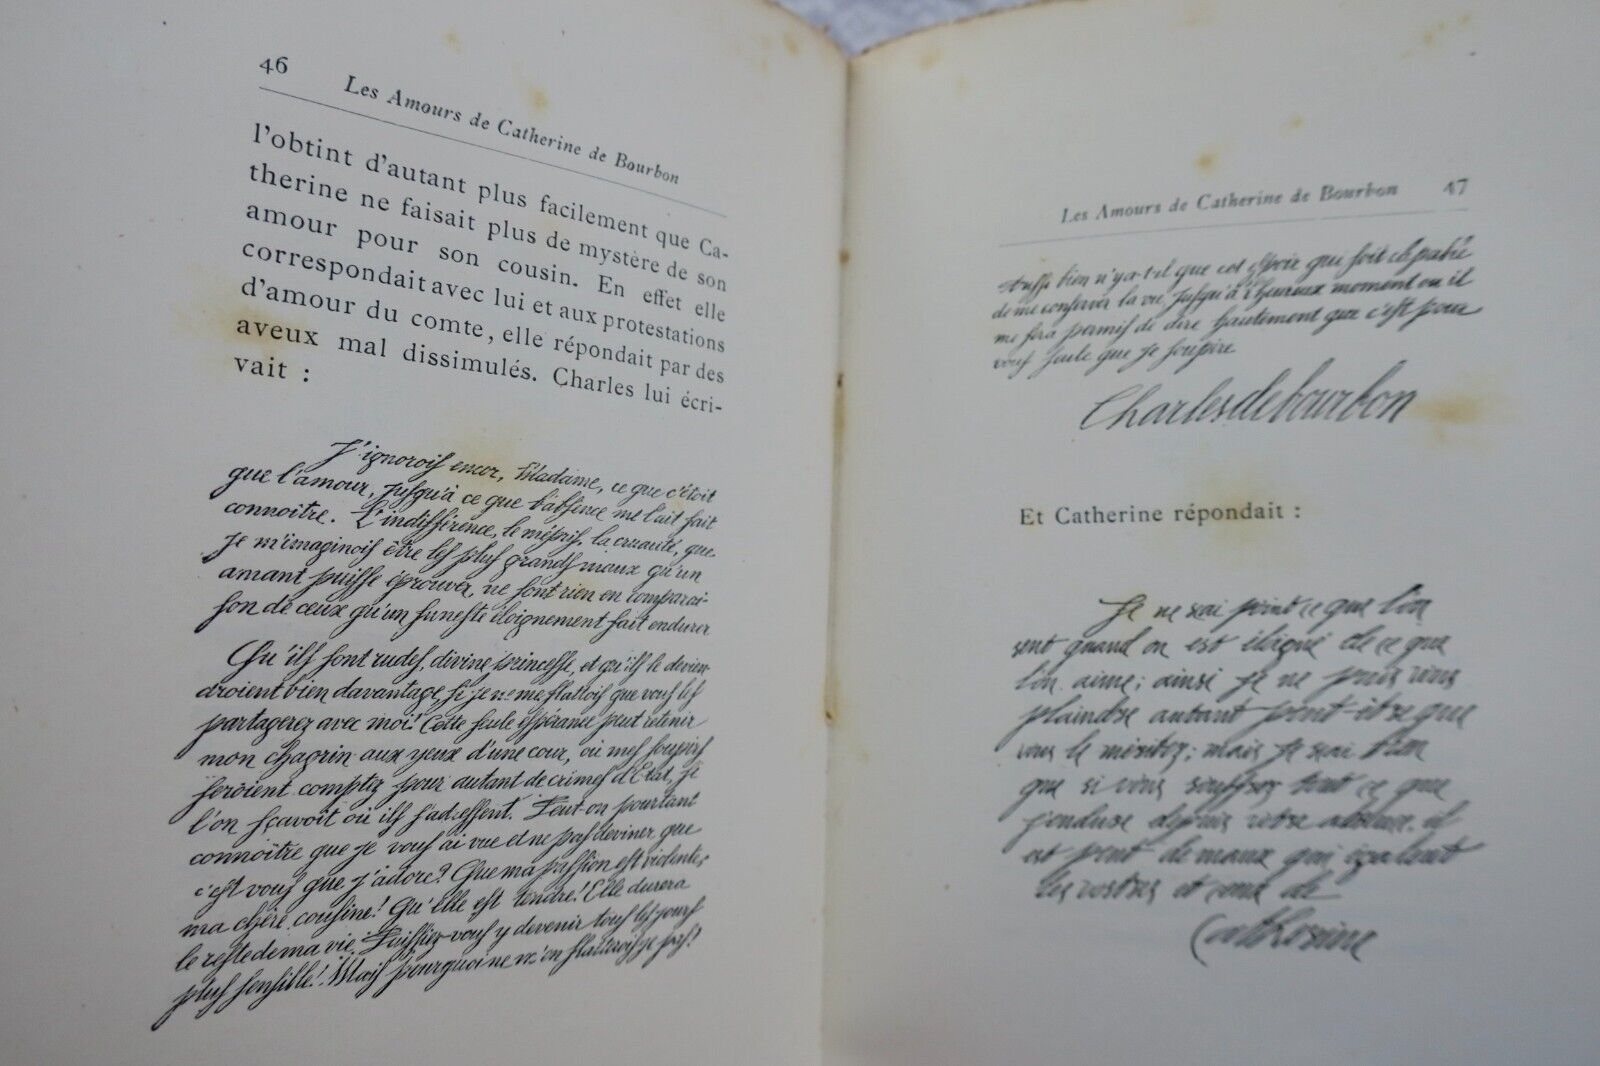 46
Les Amours de Catherine de Bourbon
l'obtint d'autant plus facilement que Ca-
therine ne faisait plus de mystère de son
amour pour son cousin. En effet elle
correspondait avec lui et aux protestations
d'amour du comte, elle répondait par des
aveux mal dissimulés. Charles lui écri-
vait :
J'ignorois encor, Madame, ce que c'étoit
que l'amour, jusqu'à ce que l'absence me l'ait fait
connoître. L'indifférence, le mépris, la cruauté, que
je m'imaginois être les plus grands maux qu'un
amant puisse éprouver, ne sont rien en comparai-
son de ceux qu'un funeste éloignement fait endurer
Qu'ils sont rudes, divine princesse, et qu'ils le devien-
droient bien davantage, si je ne me flattois que vous les
partagerez avec moi! Cette seule espérance peut retenir
mon chagrin aux yeux d'une cour, où mes soupirs
seroient comptez pour autant de crimes d'Etat, si
l'on sçavoit où ils s'adressent. Peut-on pourtant
connoître que je vous ai vue et ne pas deviner que
c'est vous que j'adore? Que ma passion est violente,
ma chère cousine! Qu'elle est tendre! Elle durera
le reste de ma vie. Puissiez-vous y devenir tous les jours
plus sensible! Mais pourquoi ne m'en flatterois-je pas!
47
Les Amours de Catherine de Bourbon
Aussi bien n'y a-t-il que cet espoir qui soit capable
de me conserver la vie, jusqu'à l'heureux moment où il
me sera permis de dire hautement que c'est pour
vous seule que je soupire
Charles de bourbon
Et Catherine répondait :
Je ne sai point ce que l'on
sent quand on est éloigné de ce que
l'on aime; ainsi je ne puis vous
plaindre autant peut-être que
vous le méritez; mais je sai bien
que si vous souffrez tout ce que
j'endure depuis votre absence, il
est peu de maux qui égalent
les vostres et ceux de
Catherine